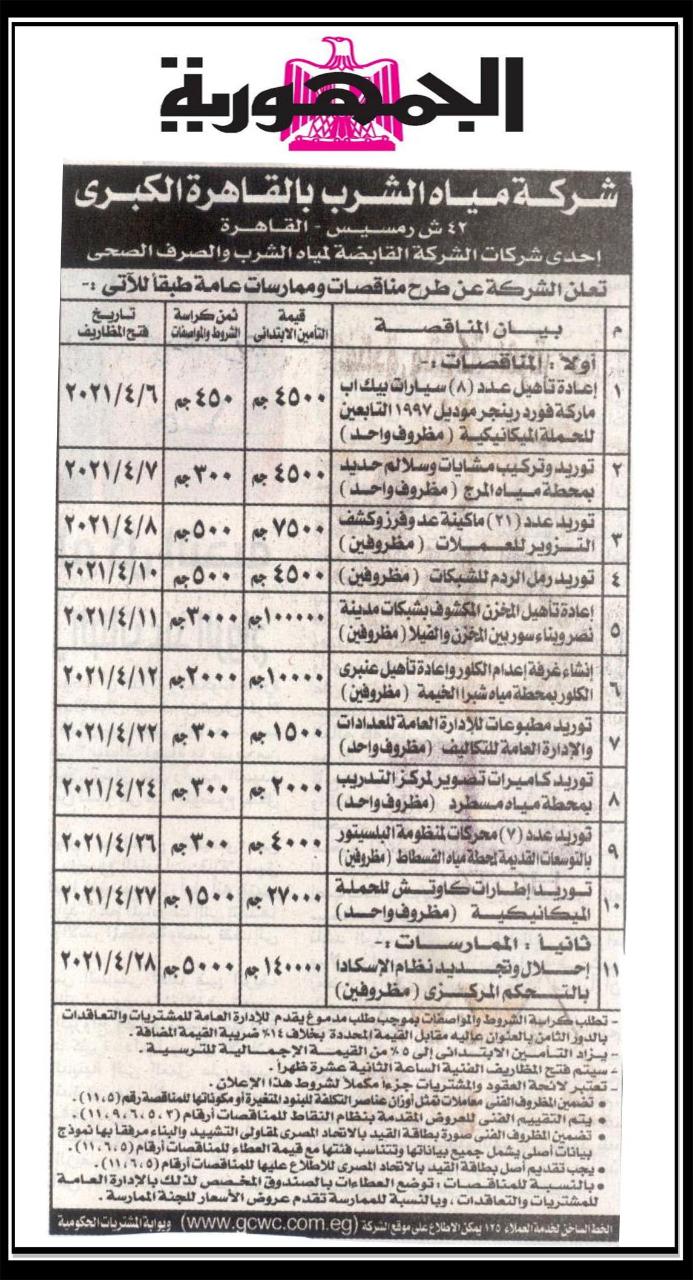 الجمهورية
شركة مياه الشرب بالقاهرة الكبرى
٤٢ ش رمسيس - القاهرة
إحدى شركات الشركة القابضة لمياه الشرب والصرف الصحى
تعلن الشركة عن طرح مناقصات وممارسات عامة طبقاً للآتى :-
م بيان المناقصة قيمة التأمين الابتدائى ثمن كراسة الشروط والمواصفات تاريخ فتح المظاريف
أولاً : المناقصات :-
١ إعادة تأهيل عدد (٨) سيارات بيك اب ٤٥٠٠ جم ٤٥٠ جم ٢٠٢١/٤/٦
ماركة فورد رينجر موديل ١٩٩٧ التابعين
للحملة الميكانيكية (مظروف واحد)
٢ توريد وتركيب مشايات وسلالم حديد ٤٥٠٠ جم ٣٠٠ جم ٢٠٢١/٤/٧
بمحطة مياه المرج (مظروف واحد)
٣ توريد عدد (٢١) ماكينة عد وفرز وكشف ٧٥٠٠ جم ٥٠٠ جم ٢٠٢١/٤/٨
التزوير للعملات (مظروفين)
٤ توريد رمل الردم للشبكات (مظروفين) ٤٥٠٠ جم ٥٠٠ جم ٢٠٢١/٤/١٠
٥ إعادة تأهيل المخزن المكشوف بشبكات مدينة ١٠٠٠٠٠ جم ٣٠٠٠ جم ٢٠٢١/٤/١١
نصر وبناء سور بين المخزن والفيلا (مظروفين)
٦ إنشاء غرفة إعدام الكلور وإعادة تأهيل عنبرى ١٠٠٠٠ جم ٢٠٠٠ جم ٢٠٢١/٤/١٢
الكلور بمحطة مياه شبرا الخيمة (مظروفين)
٧ توريد مطبوعات للإدارة العامة للعدادات ١٥٠٠ جم ٣٠٠ جم ٢٠٢١/٤/٢٢
والإدارة العامة للتكاليف (مظروف واحد)
٨ توريد كاميرات تصوير لمركز التدريب ٢٠٠٠ جم ٣٠٠ جم ٢٠٢١/٤/٢٤
بمحطة مياه مسطرد (مظروف واحد)
٩ توريد عدد (٧) محركات لمنظومة البلسيتور ٤٠٠٠ جم ٣٠٠ جم ٢٠٢١/٤/٢٦
بالتوسعات القديمة لمحطة مياه الفسطاط (مظروفين)
١٠ توريد إطارات كاوتش للحملة ٢٧٠٠٠ جم ١٥٠٠ جم ٢٠٢١/٤/٢٧
الميكانيكية (مظروف واحد)
ثانياً : الممارسات :-
١١ إحلال وتجديد نظام الإسكادا ١٤٠٠٠٠ جم ٥٠٠٠ جم ٢٠٢١/٤/٢٨
بالتحكم المركزى (مظروفين)
- تطلب كراسة الشروط والمواصفات بموجب طلب مدموغ يقدم للإدارة العامة للمشتريات والتعاقدات
بالدور الثامن بالعنوان عاليه مقابل القيمة المحددة بخلاف ١٤٪ ضريبة القيمة المضافة.
- يزاد التأمين الابتدائى إلى ٥٪ من القيمة الإجمالية للترسية.
- سيتم فتح المظاريف الفنية الساعة الثانية عشرة ظهراً.
- تعتبر لائحة العقود والمشتريات جزءاً مكملاً لشروط هذا الإعلان.
• تضمين المظروف الفنى معاملات تمثل أوزان عناصر التكلفة للبنود المتغيرة أو مكوناتها للمناقصة رقم (١١،٥).
• يتم التقييم الفنى للعروض المقدمة بنظام النقاط للمناقصات أرقام (١١،٩،٦،٥،٣).
• تضمين المظروف الفنى صورة بطاقة القيد بالاتحاد المصرى لمقاولى التشييد والبناء مرفقاً بها نموذج
بيانات أصلى يشمل جميع بياناتها وتتناسب فئتها مع قيمة العطاء للمناقصات أرقام (١١،٦،٥).
• يجب تقديم أصل بطاقة القيد بالاتحاد المصرى للإطلاع عليها للمناقصات أرقام (١١،٦،٥).
• بالنسبة للمناقصات : توضع العطاءات بالصندوق المخصص لذلك بالإدارة العامة
للمشتريات والتعاقدات ، وبالنسبة للممارسة تقدم عروض الأسعار للجنة الممارسة.
الخط الساخن لخدمة العملاء ١٢٥ يمكن الاطلاع على موقع الشركة (www.gcwc.com.eg) وبوابة المشتريات الحكومية